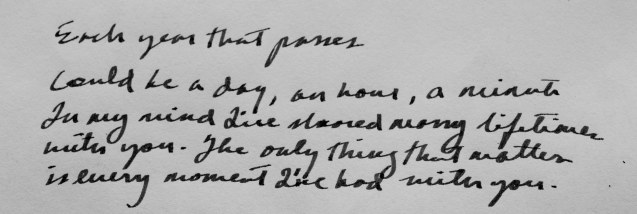 Each year that passes
Could be a day, an hour, a minute
In my mind I've shared many lifetimes
with you. The only thing that matters
is every moment I've had with you.